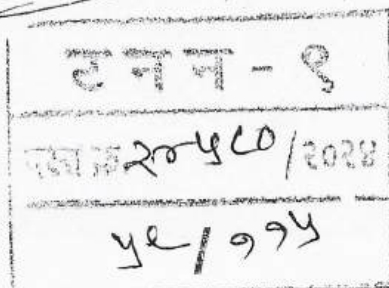 ट न न - ९
दस्त क्र. २०५८०/२०२४
५९/११५